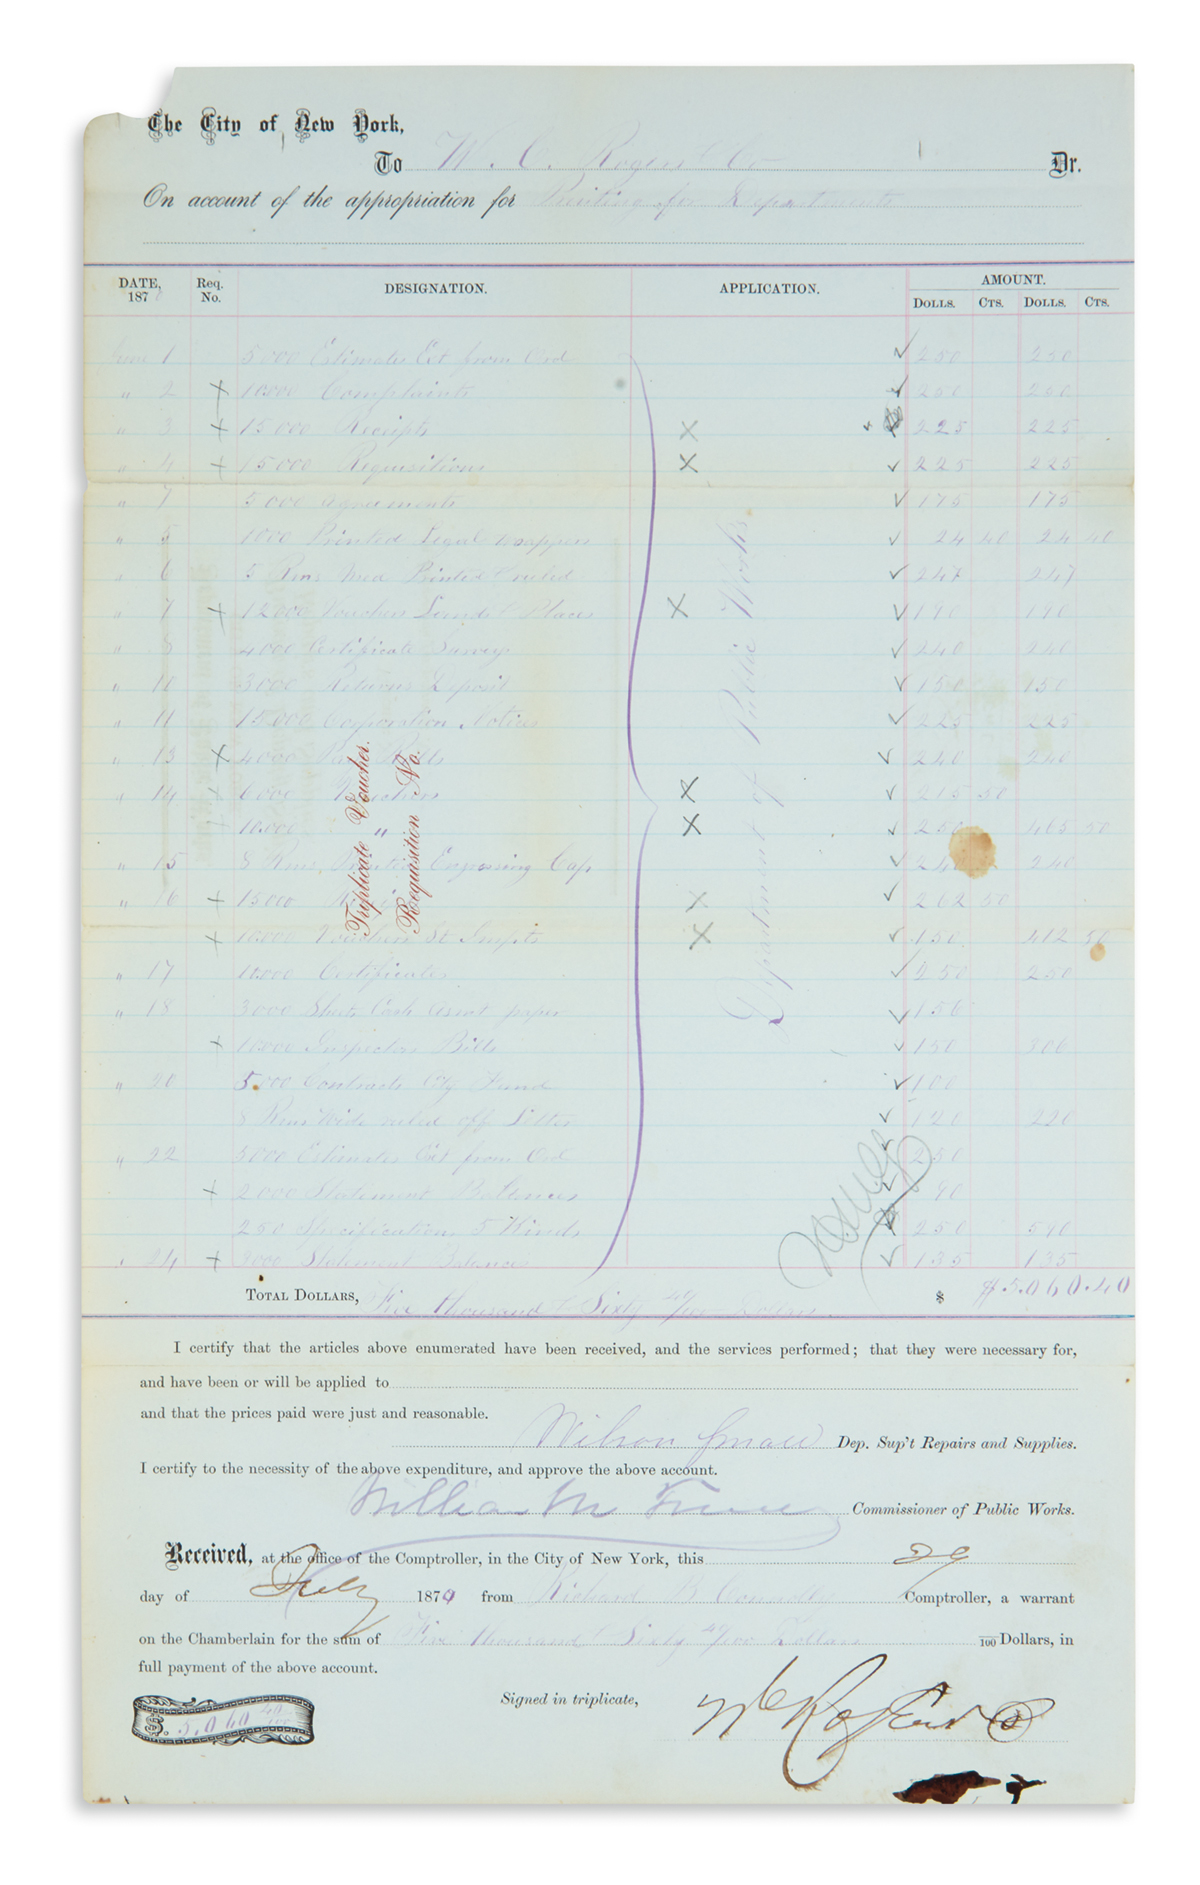 The City of New York,
To W. C. Rogers & Co Dr.
On account of the appropriation for Printing for Departments
DATE, 187 Req. No. DESIGNATION. APPLICATION. AMOUNT.
DOLLS. CTS. DOLLS. CTS.
June 1 5000 Estimates Ext from Ord 250 250
" 2 10.000 Complaints 250 250
" 3 15000 Receipts 225 225
" 4 15000 Requisitions 225 225
" 7 5000 Agreements 175 175
" 5 1000 Printed Legal Wrappers 24 40 24 40
" 6 5 Rms Med Printed & ruled 247 247
" 7 12000 Vouchers Lands & Places 190 190
" 8 4000 Certificate Surveys 240 240
" 10 3000 Returns Deposit 150 150
" 11 15.000 Corporation Notices 225 225
" 13 4000 Pay Rolls 240 240
" 14 6000 Vouchers 215 50
10.000 " 250 465 50
" 15 8 Rms Printed Engrossing Cap 240 240
" 16 15000 262 50
10.000 Vouchers St Impts 150 412 50
" 17 10.000 Certificates 250 250
" 18 3000 Sheets Cash Asmt paper 156
10.000 Inspectors Bills 150 306
" 20 5.000 Contracts City Fund 100
8 Rms Wide ruled off Letter 120 220
" 22 5000 Estimates Ext from Ord 250
2000 Statement Balances 90
250 Specification 5 Kinds 250 590
" 24 3000 Statement Balances 135 135
Department of Public Works
Triplicate Voucher.
Requisition No.
TOTAL DOLLARS, Five thousand & Sixty 40/100 Dollars. $ $5.060.40
I certify that the articles above enumerated have been received, and the services performed; that they were necessary for,
and have been or will be applied to
and that the prices paid were just and reasonable.
Wilson Small Dep. Sup't Repairs and Supplies.
I certify to the necessity of the above expenditure, and approve the above account.
William M Tweed Commissioner of Public Works.
Received, at the office of the Comptroller, in the City of New York, this 29
day of July 1870 from Richard B. Connolly Comptroller, a warrant
on the Chamberlain for the sum of Five thousand & Sixty 40/100 Dollars 100 Dollars, in
full payment of the above account.
Signed in triplicate,
$. 5,060 40/100
W C Rogers & Co